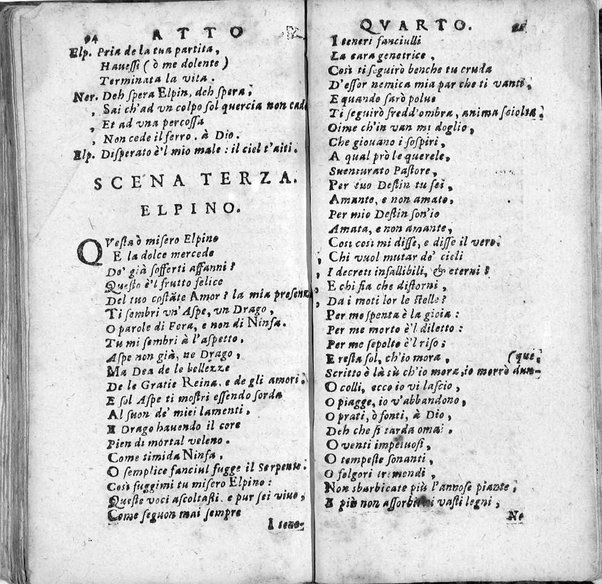 94 ATTO
Elp. Pria de la tua partita,
Hauessi (ò me dolente)
Terminata la vita.
Ner. Deh spera Elpin, deh spera;
Sai ch'ad vn colpo sol quercia non cade
Et ad vna percossa
Non cede il ferro. à Dio.
Elp. Disperato è'l mio male: il ciel t'aiti.
SCENA TERZA.
ELPINO.
QVesta ò misero Elpino
E la dolce mercede
Do' già sofferti affanni?
Questo è'l frutto felice
Del tuo costãte Amor? la mia presenza,
Ti sembri vn'Aspe, vn Drago,
O parole di Fera, e non di Ninfa.
Tu mi sembri à l'aspetto,
Aspe non già, ne Drago,
Ma Dea de le bellezze
De le Gratie Reina. e de gli amori.
E sol Aspe ti mostri essendo sorda
Al suon de' miei lamenti,
E Drago hauendo il core
Pien di mortal veleno.
Come timida Ninfa.
O semplice fanciul fugge il Serpente.
Così fuggimi tu misero Elpino:
Queste voci ascoltasti. e pur sei viuo,
Come seguon mai sempre
I tene-
QVARTO.
I teneri fanciulli
La cara genetrice,
Così ti seguirò benche tu cruda
D'esser nemica mia par che ti vanti,
E quando sarò polue
Ti seguirò fredd'ombra, anima sciolta,
Oime ch'in van mi doglio,
Che giouano i sospiri,
A qual prò le querele,
Suenturato Pastore,
Per tuo Destin tu sei,
Amante, e non amato,
Per mio Destin son'io
Amata, e non amante,
Così così mi disse, e disse il vero.
Chi vuol mutar de' cieli
I decreti infallibili, & eterni?
E chi fia che distorni,
Da i moti lor le stelle?
Per me spenta è la gioia:
Per me morto è'l diletto:
Per me sepolto è'l riso;
E resta sol, ch'io mora, (que,
Scritto è là sù ch'io mora, io morrò dun-
O colli, ecco io vi lascio,
O piagge, io v'abbandono,
O prati, ò fonti, à Dio,
Deh che si tarda omai
O venti impetuosi,
O tempeste sonanti,
O folgori tremendi
Non sbarbicate più l'annose piante,
E più non assorbite i vasti legni,
Ne